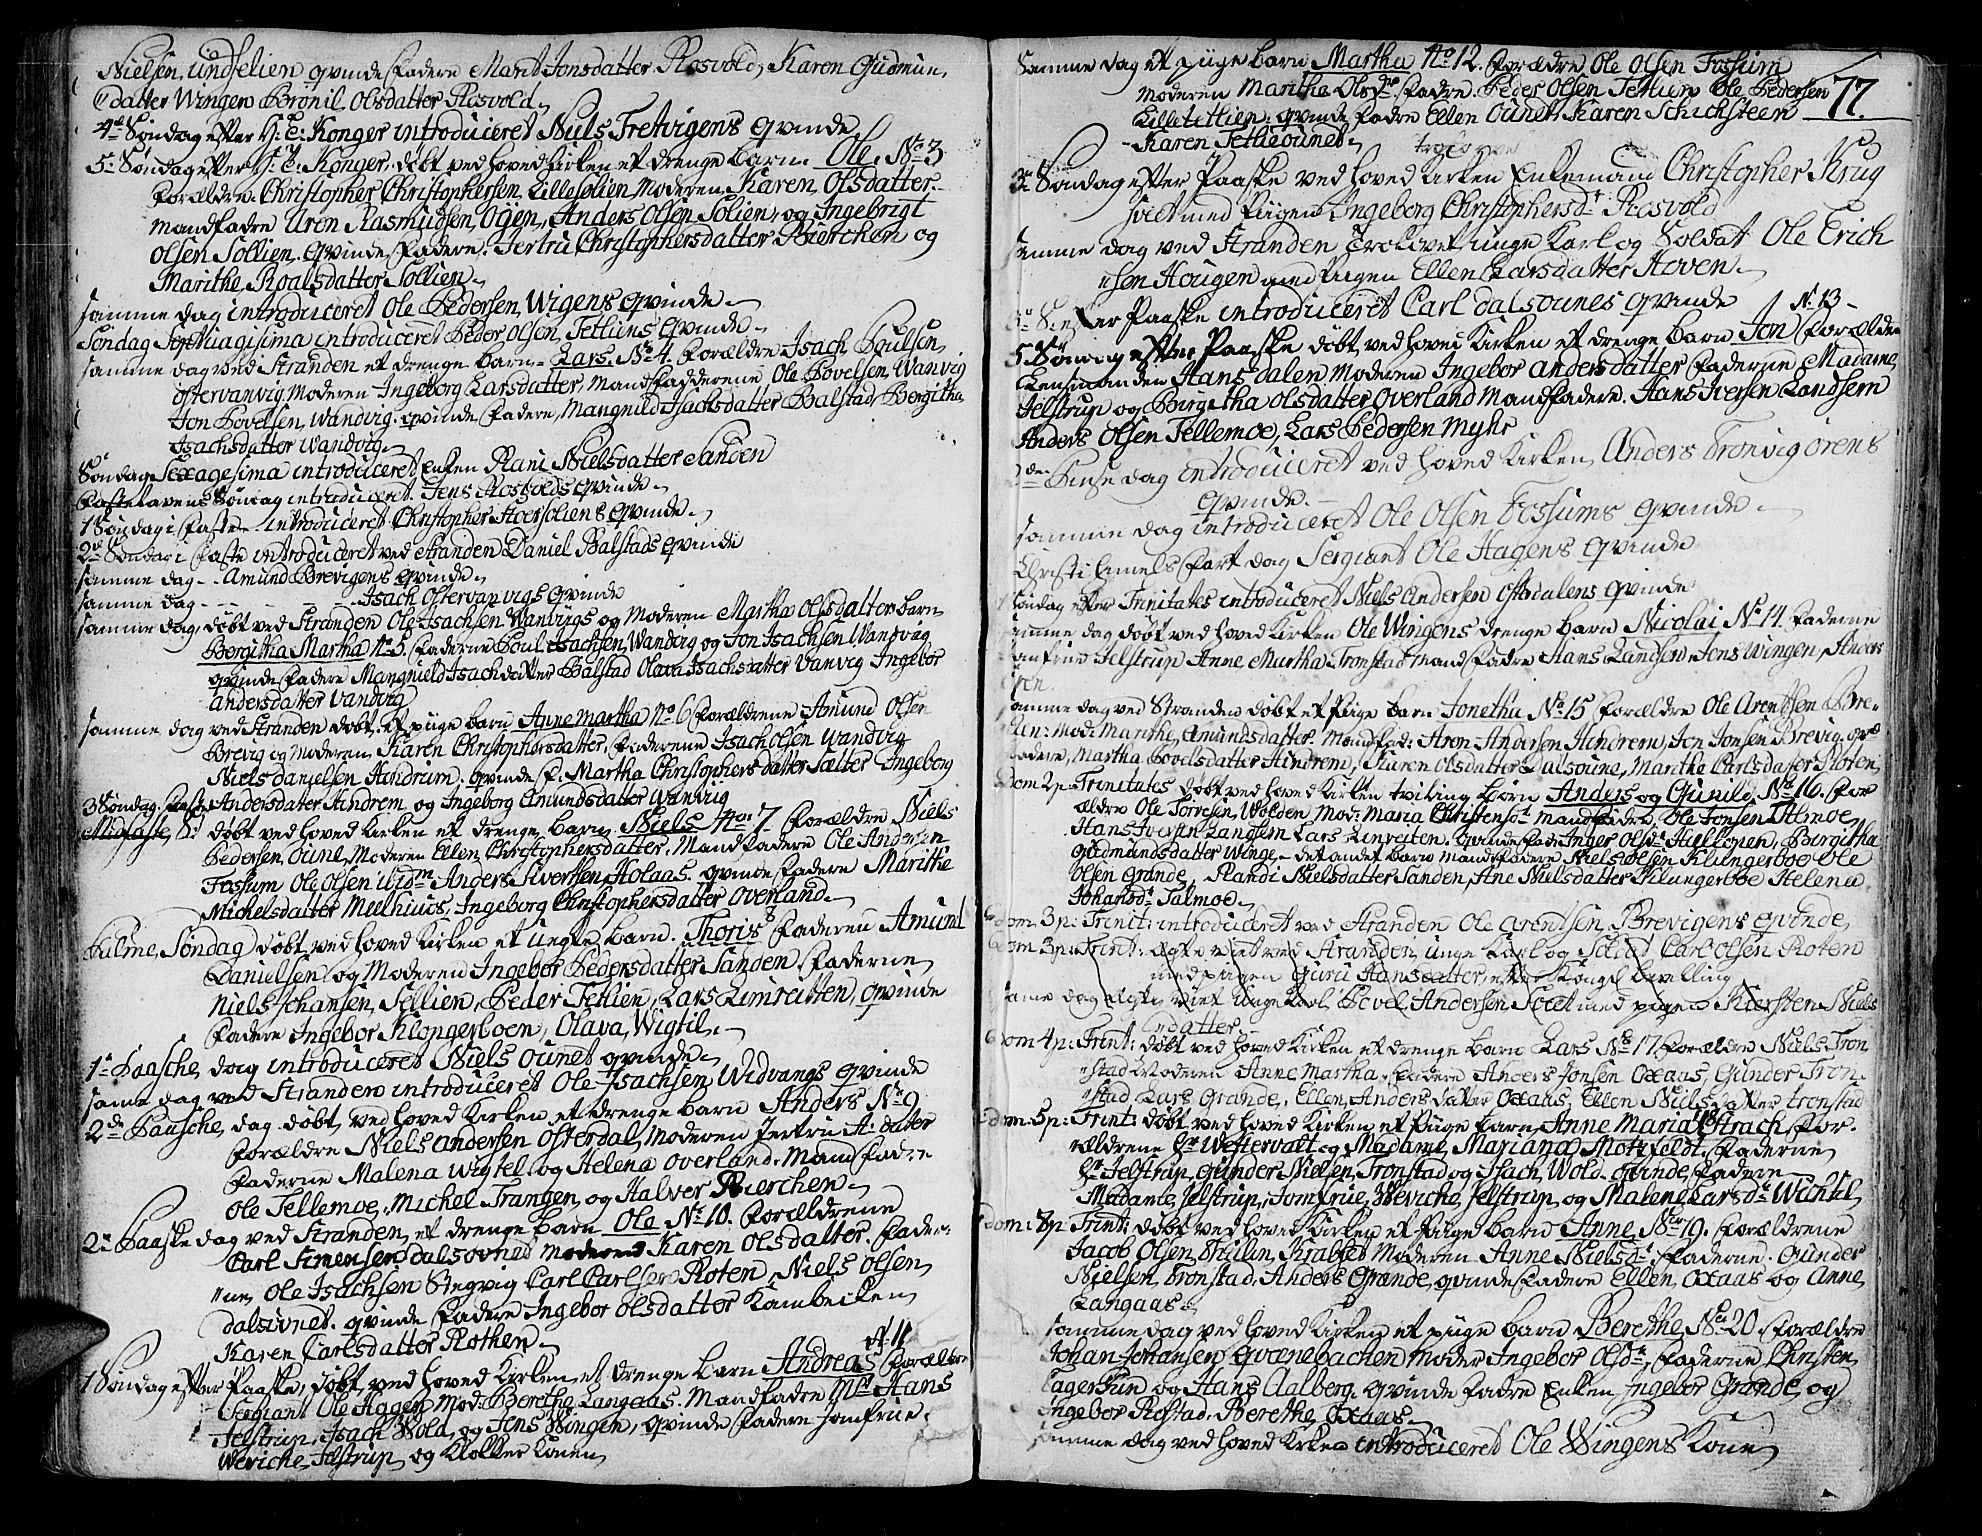 Nielsen, undselien qvinde fadere Marit Jonsdatter Rosvold, Karen Gudmun,
"datter Wingen Brønil Olsdatter Rosvold.
4de Søndag efter H: 3: Konger introduceret Niels Tretvigens qvinde
5te Søndag efter H: 3: Konger, døbt ved hoved Kirken et drenge barn. Ole. No 3
Forældre Christopher Christophersen Lillesølien Moderen Karen Olsdatter.
mandfadre Uren Rasmudsen Oÿen, Anders Olsen Solien, og Ingebrigt
Olsen Sollien. qvinde fadere. Jertru Christophersdatter Bierchem og
Marithe Roalsdatter Sollien.
samme dag introduceret Ole Pedersen, Wigens qvinde
Søndag Septuagisima introduceret Peder Olsen, Tetliens qvinde
samme dag ved Stranden et drenge barn. Lars. No 4. Forældre Isach Poulsen,
østervanvig, Moderen Ingeborg Larsdatter, mandfadderene Ole Povelsen, Wanvig
Jon Povelsen, Wandvig. qvinde fadere, Mangnild Isachsdatter Balstad, Bergitha
Isachsdatter Wandvig.
Søndag Sexagesima introduceret Enken Rani Nielsdatter Sanden
Fastelavens Søndag introduceret Jens Rosvolds qvinde
1 Søndag i faste introduceret Christopher Hoersøliens qvinde.
2de Søndag i faste introduceret ved Stranden Daniel Balstads qvinde
samme dag - - Amund Brevigens qvinde.
samme dag - - - - Isach Østervanvigs qvinde
samme dag, døbt ved Stranden Ole Isachsen Wanvigs og Moderen Martha Olsdatters barn
Bergitha Martha No 5. faderne Poul Isachsen, Wandvig og Jon Isachsen Wandvig
qvinde fadere Mangnield Isachdatter Balstad Olava Isachsdatter Vanvig Ingebor
andersdatter Vandvig
samme dag ved Stranden døbt et pige barn Anne martha No 6 Forældrene Amund Olsen
Brevig og Moderen Karen Christophersdatter, faderene Isach Olsen Wandvig
Niels danielsen Hindrum. qvinde f: Martha Christophersdatter Sæter Ingeborg
3 Søndag Faste Andersdatter Hindrem og Ingeborg Amundsdatter Wanvig
Midfaste, S: døbt ved hoved Kirken et drenge barn Niels No: 7 Forældre Niels
Pedersen, Oune, Moderen Ellen Christophersdatter. Mandfadere Ole Andersen
Fossum Ole Olsen ibid:m Anders Siversen, Holaas. qvinde fadere Marithe
Michelsdatter Melhuus, Ingeborg Christophersdatter Overland.
Palme Søndag døbt ved hoved Kirken et uegte barn. Thoris 8 Faderen Amund
Danielsen og Moderen Ingebor Pedersdatter Sanden. Faderne
Niels Johansen, Sellien, Peder Tetlien, Lars Limreitten, qvinde
fadere Ingebor Klongerboen, Olava, Wigtil.
1te Paasche, dag introduceret Niels Ounet qvinde
same dag ved Stranden introduceret Ole Isachsen, Widvangs qvinde
2de Paasche, dag døbt, ved hoved Kirken et drenge barn Anders No 9
Forældre Niels andersen Østerdal, Moderen Jertru A: dater
Faderne Malena Wigtel og Helena overland. Mandfadre
Ole Tellemoe, Michel Trangen og Halver Bierchen.
2de Paaske dag ved Stranden, et drenge barn Ole No 10. Forældrene
Carl Simensen dalsovned Moderen Karen Olsdatter. fader-
"ne Ole Isachsen Stegvig Carl Carlsen Roten, Niels Olsen,
dalsovnet. qvinde fadere Ingebor Olsdatter Kambecken
Karen Carlsdatter Rothen
1 Søndag efter Paaske, døbt, ved hoved Kirken, et drenge barn Andreas N:11 Forældre
Sergiant Ole Hagen Mod: Berethe Langaas. Mandfadre Msr Hans
Jelstrup. Isach Wold, og Jens Wingen, qvinde fadere Jomfrue.
Weviche Jelstrup og Klokker Konen
77.
Samme dag et pige barn Martha No 12. Forældre Ole Olsen Fossum
Moderen Maritha Olsdr. fadere. Peder Olsen Tetlien Ole Pedersen
Lilletetlien: qvinde fadre Ellen Ounet, Karen Schichsteen
Karen Tetlieounet.
3de Søndag efter Paaske ved hoved Kirken Enkemand Christopher Krug
Soelt med Piigen Ingeborg Christophersdr Rosvold
samme dag ved Stranden Trolovet unge Karl og Soldat Ole Erich
"sen Hougen med Piigen Ellen Larsdatter Hoven.
Paaske introduceret Carl dalsounes qvinde
5 Søndag efter Paaske døbt ved hoved Kirken et drenge barn Jon N: 13 Forælder
Lensmanden Hans dalen Moderen Ingebor andersdatter Faderne Madame,
Jelstrup og Birgitha Olsdatter Overland Mandfadere. Hans Iversen Landsem
Anders Olsen Tellemoe, Lars Pedersen Myhr
2den Pinse dag introduceret ved hoved Kirken, Anders Tronvigørens
qvinde.
samme dag introduceret Ole Olsen Fossums qvinde
Christi himels fart dag Sergiant Ole Hagens qvinde
Søndag efter Trinitates introduceret Niels Andersen Østerdalens qvinde
samme dag døbt ved hoved Kirken Ole Wingens drenge barn Nicolai No 14. Faderne
Jomfrue Jelstrup Anne Martha Tronstad mandfadre Hans Landsen, Jens Wingen, Anders
samme dag ved Stranden døbt et Piige barn Jonetha No 15 Forældre Ole Arentsen Bre-
Mod: Marithe, Amundsdatter. Mandfad: Aron Andersen Hindrem, Jon Jonsen Brevig. qv:
fadere, Martha Povelsdatter Hindrem, Karen Olsdatter Dalsoune, Marithe Carlsdatter Roten,
dom 2 p: Trinitates døbt ved hoved Kirken tviling børn Anders og Gunild No 16. For
ældre Ole Torresen, Wolden Mod: Maria Christensdr Mandfadre, Ole Jonsen Telmoe,
Hans Iversen Landsem Lars Limreiten. qvinde Fad: Inger Olsdr Hellopen, Bergitha
Gudmundsdatter Winge - det andet barn mandfadere Niels Olsen Klungerboe Ole
Olsen Grande, Randi Nielsdatter Sanden, Ane Nielsdatter Klungerboe Helena
Johansdr Talmoe.
dom: 3 p: Trinit: introduceret ved Stranden Ole Arentsen Brevigens qvinde,
dom: 3 p: Trint: ægte viet ved Stranden, unge Karl og Soldat Carl Olsen Roten
med pigen Guru Hansdatter, efter Kongl bevilling
same dag ægte viet unge Karl Povel Andersen Soet med pigen Kiersten Niels
datter
dom 4 p: Trint: døbt ved hoved Kirken et drenge barn Lars No 17. Forældre Niels Tron
"stad Moderen Anne Martha. fadere Anders Jonsen Oxaas, Gunder Tron-
"stad Lars Grande, Ellen, Andersdatter Oxaas, Ellen Nielsdatter Tronstad
dom: 5 p: Trint: døbt ved hoved Kirken et Piige barn Anne Maria Strach For.
"ældrene Hr Westervalt og Madame Mariana Motzfeldt. Faderne
Hr Jelstrup, Gunder Nielsen, Tronstad og Isach, Wold. qvinde, fadere
Madame, Jelstrup, Jomfrue, Weviche, Jelstrup, og Malene Larsdr Wichtil,
dom: 7 p: Trint: døbt ved hoved Kirken et Piige barn Anne No 19. Forældrene
Jacob Olsen, Thulin, Krabbed Moderen Anne Nielsdr. Faderne. Gunder
Nielsen, Tronstad. Anders Grande, qvinde fadere Ellen, Oxaas og Anne,
Langaas.
samme dag ved hoved Kirken et pige barn Berethe No 20. Forældre
Johan Johansen qvænebachen Moder Ingebor Olsdr, Faderne Christen,
Fagerlun og Hans Aalberg, qvinde fadre Enken, Ingebor Grande, og
Ingebor Rostad. Berethe Oxaas.
samme dag ved hoved Kirken introduceret Ole Wingens Kone